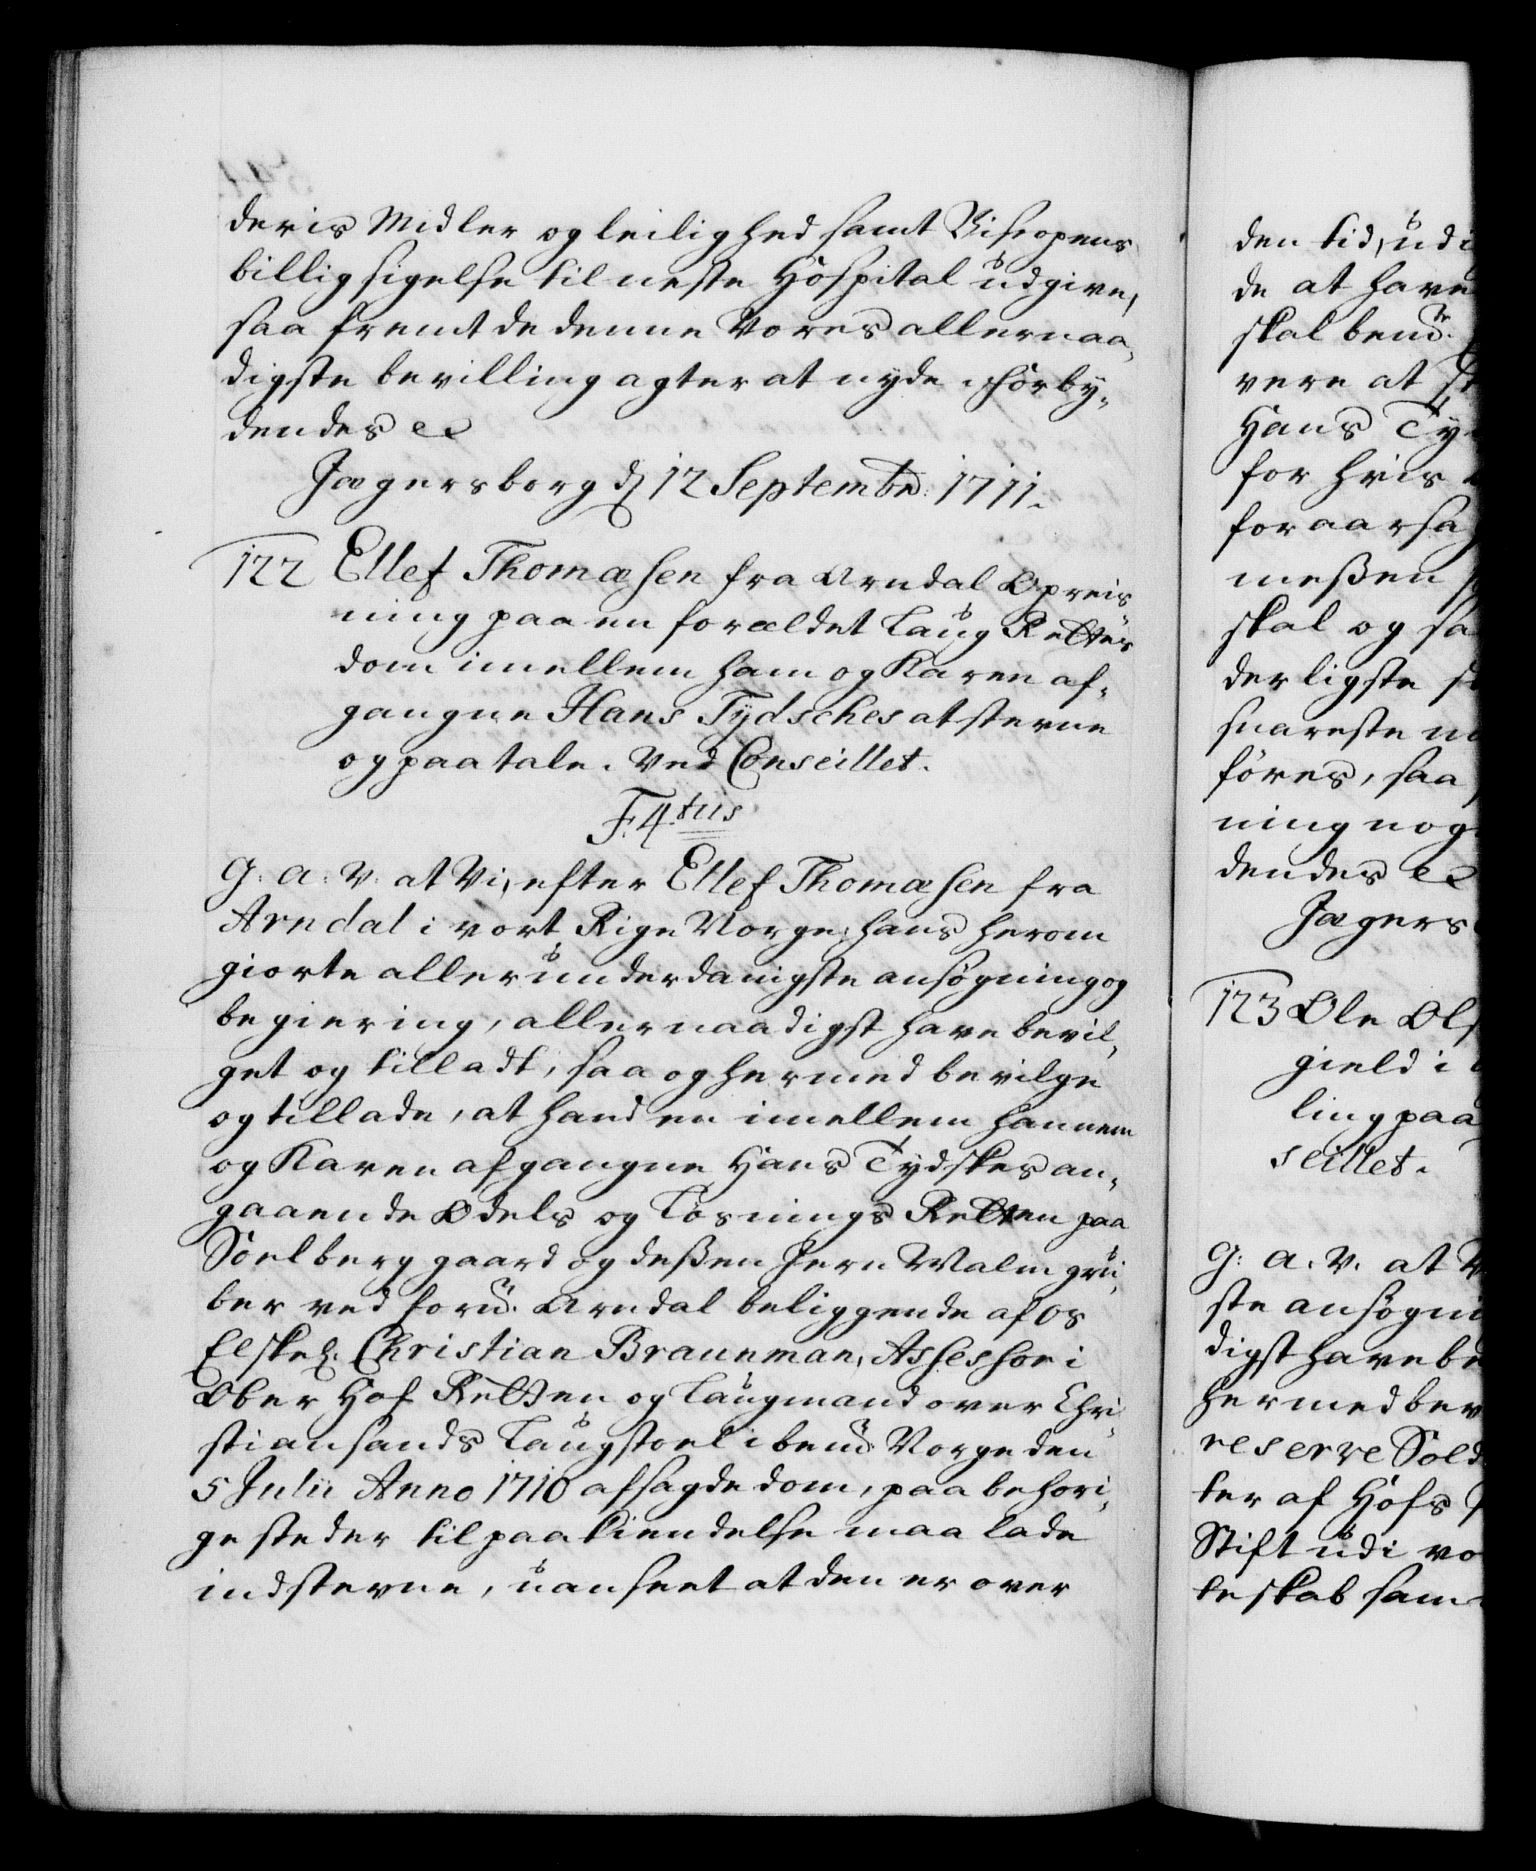 deris Midler og leilighed samt Bispens
billigsigelse til neste Hospital udgive,
saa fremt de denne Vores allernaa,
digste bevilling agter at nyde, Forby,
dendes &c
Jægersborg d 12 Septembr: 1711.
122 Ellef Thomæsen fra Arndal Opreis
ning paa en forældet Laug Rettes
dom imellem ham og Karen af,
gangne Hans Tydsches at stevne
og paatale. Ved Conseillet.
F. 4.tus
G: A: V: at Vi, efter Ellef Thomæsen fra
Arndal i vort Rige Norge, hans herom
giorte allerunderdanigste ansøgning og
begiering, allernaadigst have bevil,
get og tilladt, saa og hermed bevilge
og tillade, at hand en imellem hannem
og Karen afgangne Hans Tydskes an,
gaaende Odels og Løsnings Retten paa
Soelberg gaard og deßen Jern Malm gru,
ber ved forn: Arndal beliggende af os
Elskel: Christian Braunman, Assessor i
Ober Hof Retten og Laugmand over Chri,
stiansands Laugstoel i bem: Norge den
5 Julii Anno 1710 afsagde dom, paa behøri,
ge steder til paakiendelse maa lade
indstevne, uanseet at den er over
den tid, udi
de at have
skal bem:
vere at
Hans Ty
for hvis
foraarsa
meßen
skal og sa
derligste
snareste
føres, saa
ning nog
dendes &c
Jægers
123 Ole Ols
gield i
ling paa
seillet.
G: A. V. at V
ste ansøgni
digst have be
hermed bev
reserve Sold
ter af Hofs
Stift udi vo
teskab sam